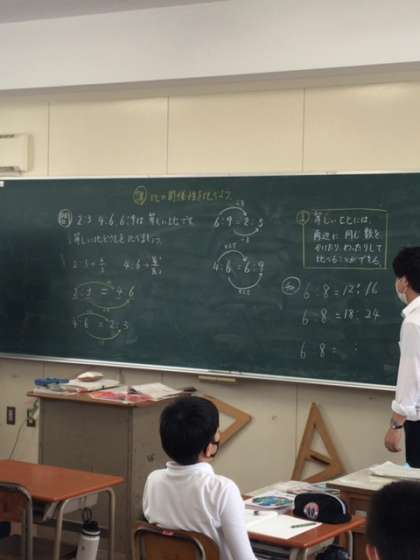 め 比の関係性を
問 2:3、4:6、6:9は等しい比です。
等しい比どうしを比べましょう。
4:6
2:3 = 4:6
4:6 = 2:3
÷3
6:9 = 2:3
÷3
4:6 = 6:9
×1.5
等しい比には、
両辺に同じ数を
かけたり、わったりして
比べることができる。
6:8=12:16
6:8=18:24
6:8= :